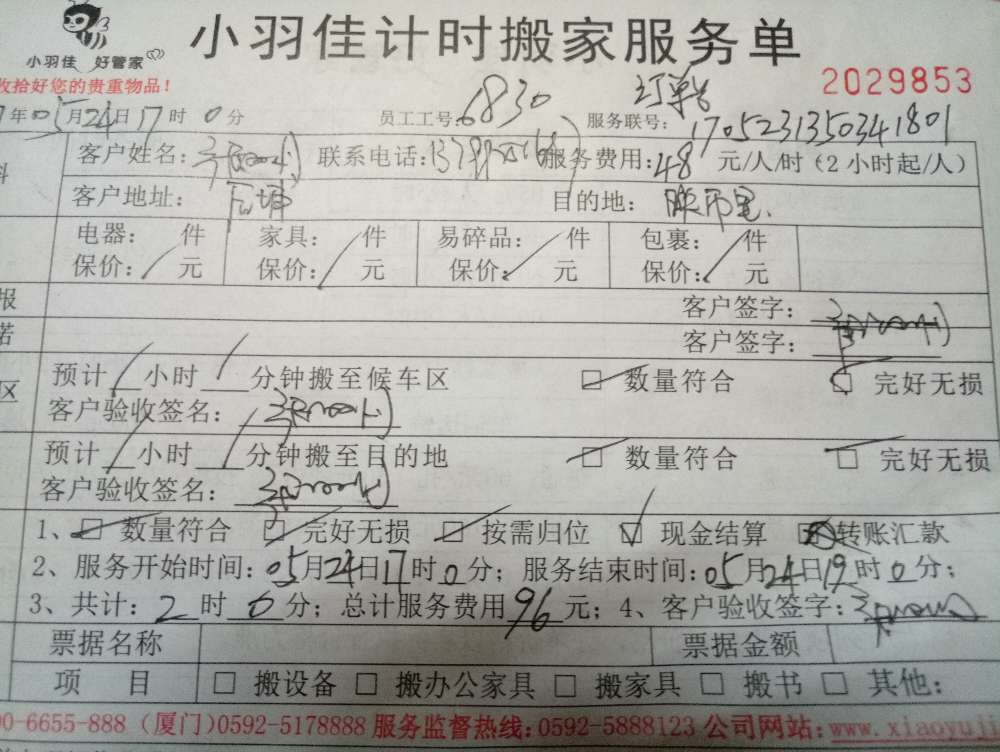 小羽佳计时搬家服务单
小羽佳 好管家
收拾好您的贵重物品！
2029853
订单号
年05月24日17时0分 员工工号：6830 服务联号：1705231350341801
客户姓名： 联系电话： 服务费用：48元/人/时（2小时起/人）
客户地址： 目的地：
电器： 件 家具： 件 易碎品： 件 包裹： 件
保价： 元 保价： 元 保价： 元 保价： 元
报 客户签字：
诺 客户签字：
区 预计 小时 分钟搬至候车区 □ 数量符合 □ 完好无损
客户验收签名：
预计 小时 分钟搬至目的地 □ 数量符合 □ 完好无损
客户验收签名：
1、□ 数量符合 □ 完好无损 □ 按需归位 ☑ 现金结算 □ 转账汇款
2、服务开始时间：05月24日17时0分；服务结束时间：05月24日19时0分；
3、共计：2时0分；总计服务费用96元；4、客户验收签字：
票据名称 票据金额
项 目 □ 搬设备 □ 搬办公家具 □ 搬家具 □ 搬书 □ 其他：
00-6655-888（厦门）0592-5178888 服务监督热线：0592-5888123 公司网站：www.xiaoyuji